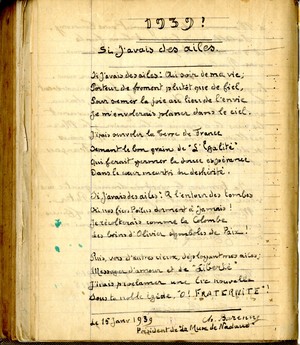 1939!
Si J'avais des ailes
Si J'avais des ailes! Au soir de ma vie,
Porteur de froment plutôt que de fiel,
Pour semer la joie au lieu de l'envie
Je m'envolerais planer dans le ciel.
J'irais survoler la Terre de France
Semant le bon grain de "L'Egalité"
Qui ferait germer la douce espérance
Dans le cœur meurtri du déshérité.
Si J'avais des ailes! A l'entour des tombes
Où nos fiers Poilus dorment à Jamais!
Je comme la Colombe
des brins d'Olivier symboles de Paix!
Puis, vers d'autres cieux, déployant mes ailes,
Messager d'amour et de "Liberté"
J'irais proclamer une ère nouvelle
Sous la noble égide "O! FRATERNITE"!
Le 15 Janv 1939
Président de "La Muse de Nadaud"